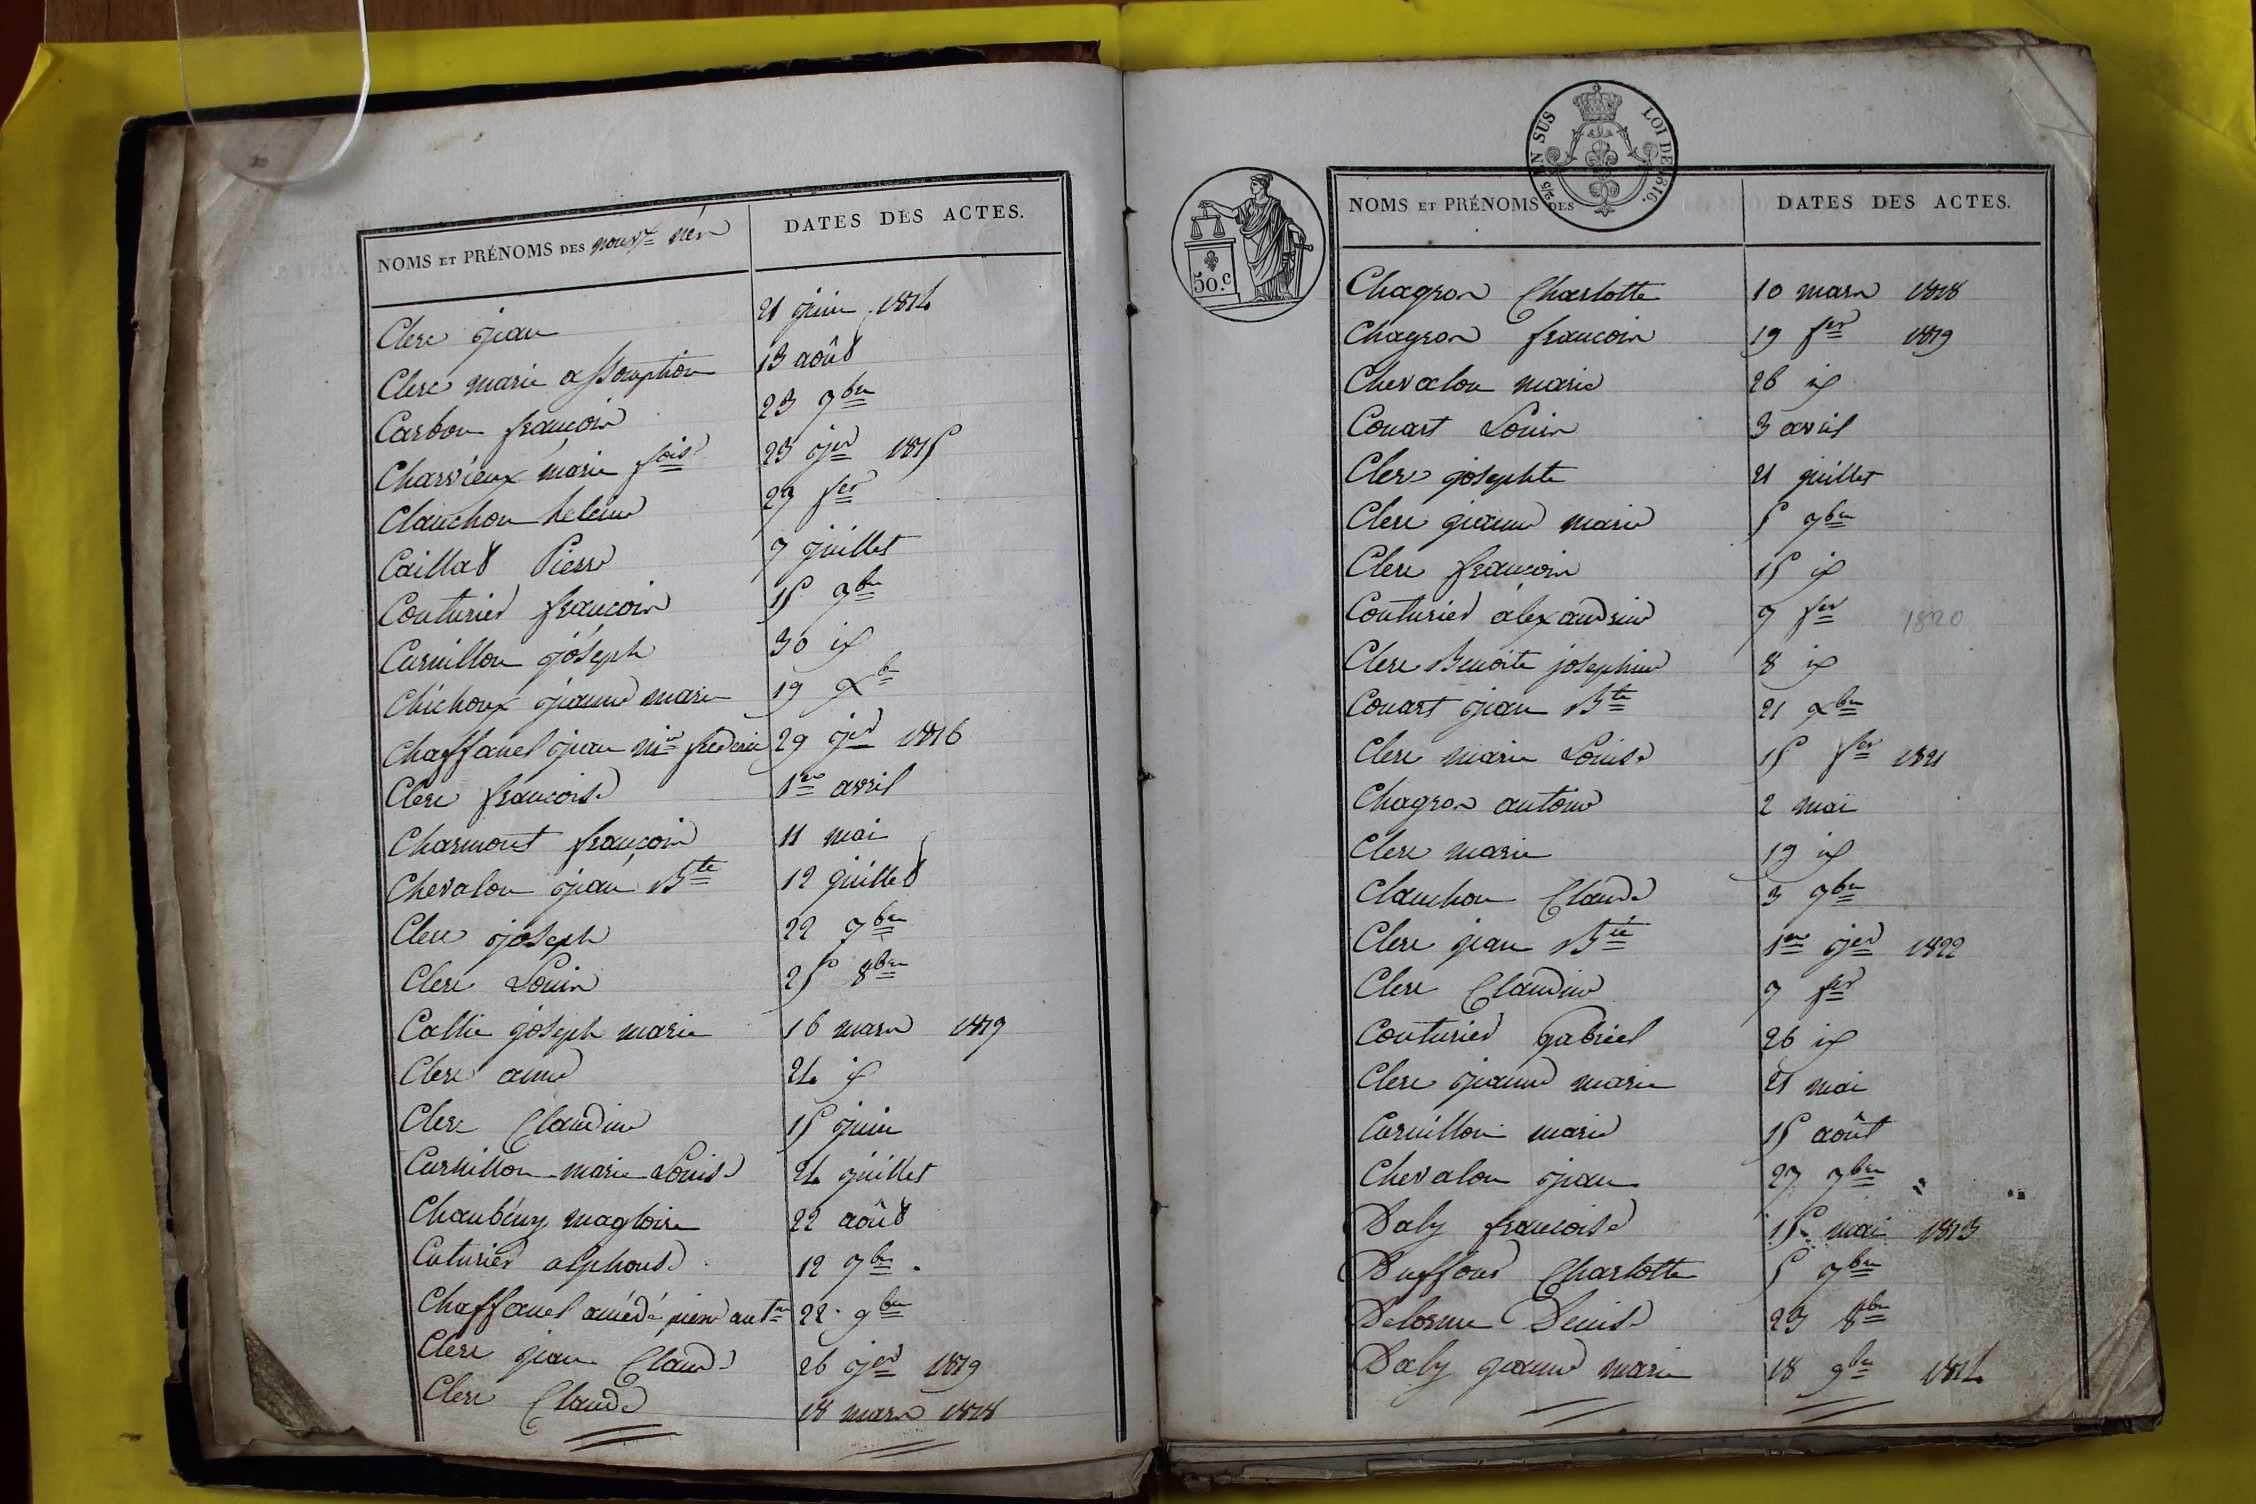 NOMS ET PRÉNOMS DES nouv.x nés DATES DES ACTES.
Clerc jean 21 juin 1814
Clerc marie assomption 13 août
Carbon françois 23 7bre
Charvieux marie foise 23 jer 1815
Clanchon heleine 27 fer
Caillat Pierre 7 juillet
Couturier françois 15 9bre
Curvillon joseph 30 id
Chichoux jeanne marie 19 Xb
Chaffanel jean mie frederic 29 jer 1816
Clerc françoise 1er avril
Charmont françois 11 mai
Chevalon jean Bte 12 juillet
Clerc joseph 22 7bre
Clerc Louis 25 8bre
Callie joseph marie 16 mars 1817
Clerc anne 24 id
Clerc Claudine 15 juin
Curvillon marie Louise 24 juillet
Chambény magloire 22 août
Cuturier alphonse 12 7bre
Chaffanel amédé pierre antne 22 9bre
Clerc jean Claude 26 jer 1819
Clerc Claude 18 mars 1818
EN SUS LOI DE 1816.
50.c
NOMS ET PRÉNOMS DES DATES DES ACTES.
Chagron Charlotte 10 mars 1818
Chagron françois 19 fer 1819
Chevalon marie 26 id
Couart Louis 3 avril
Clerc josephte 21 juillet
Clerc jeanne marie 5 7bre
Clerc françois 15 id
Couturier alexandrine 7 fer 1820
Clerc Benoite josephine 8 id
Couart jean Bte 21 Xbre
Clerc marie Louise 15 fer 1821
Chagron antoine 2 mai
Clerc marie 19 id
Clanchon Claude 3 9bre
Clerc jean Bte 1er jer 1822
Clerc Claudine 7 fer
Couturier gabriel 26 id
Clerc jeanne marie 21 mai
Curvillon marie 15 août
Chevalon jean 27 7bre
Daly françoise 15 mai 1813
Duffour Charlotte 5 7bre
Delorme Denise 23 8bre
Daly jeanne marie 18 9bre 1814